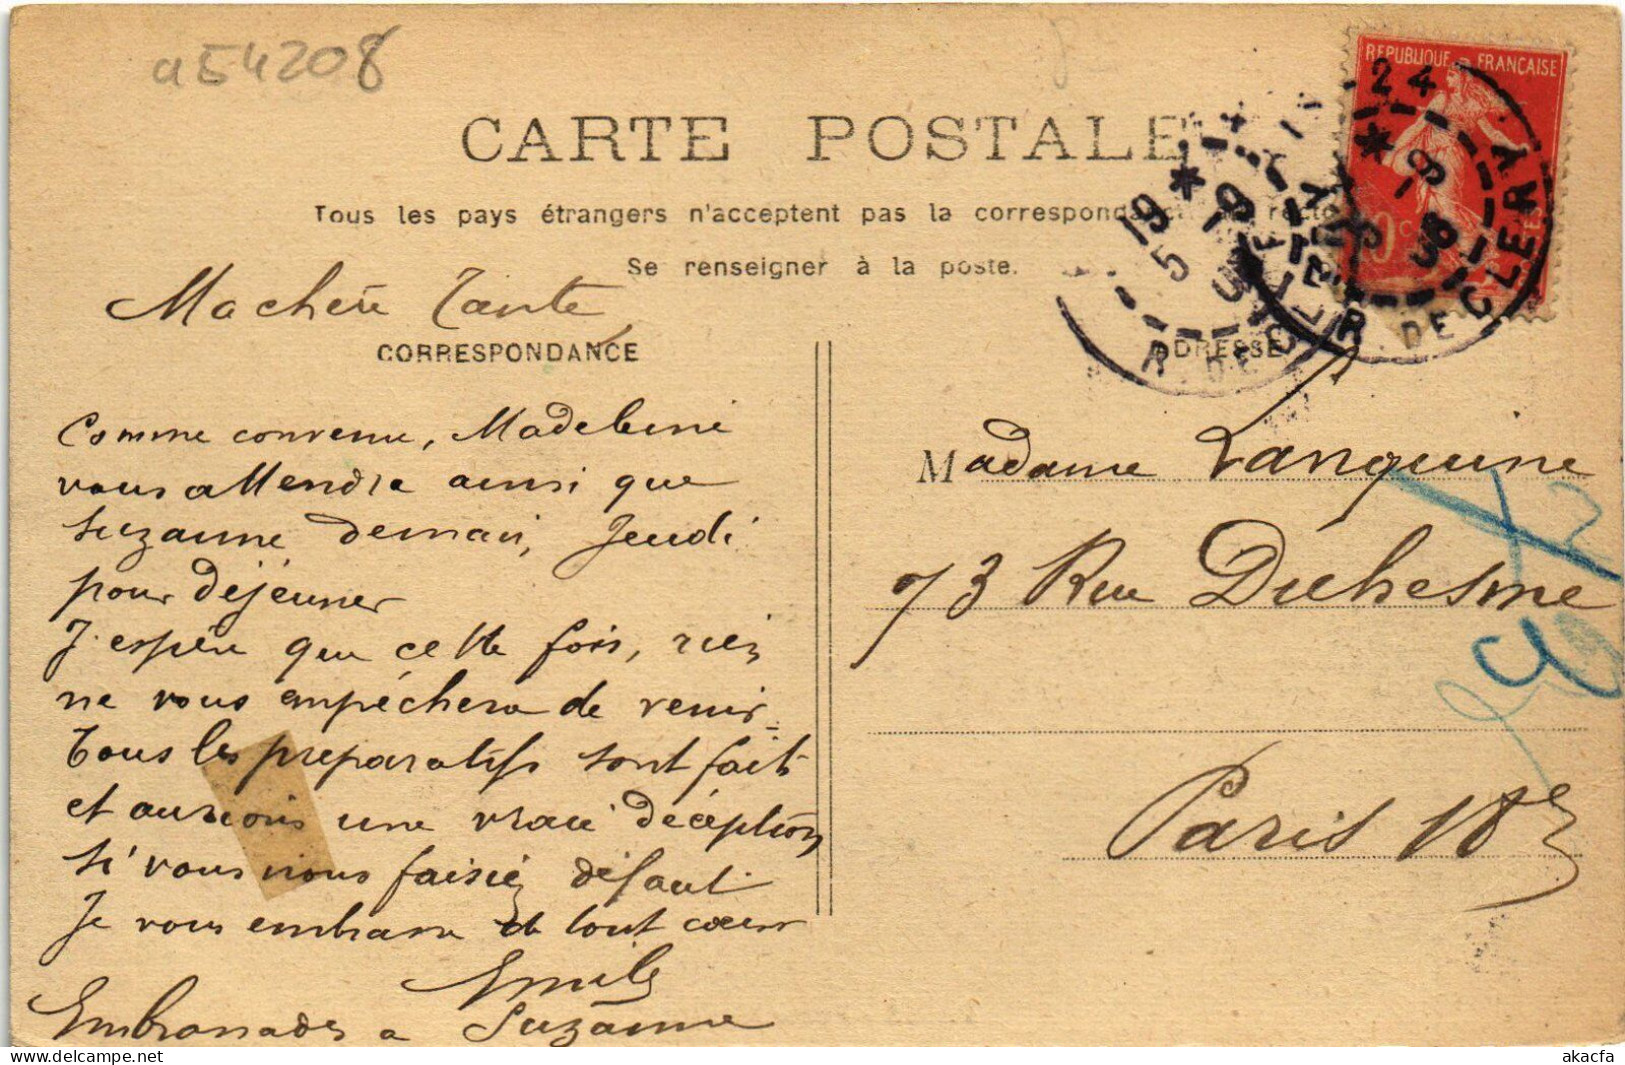 a54208
REPUBLIQUE FRANÇAISE
CARTE POSTALE
Tous les pays étrangers n'acceptent pas la correspondance au recto
Se renseigner à la poste.
Ma chère Tante
CORRESPONDANCE
ADRESSE
R. DE CLERY
R. DE CLERY
Comme convenu, Madeleine
vous attendra ainsi que
Suzanne demain, Jeudi
pour déjeuner
J'espère que cette fois, rien
ne vous empêchera de venir
Tous les préparatifs sont faits
et aurions une vraie déception
si vous nous faisiez défaut
Je vous embrasse de tout cœur
Emile
Embrassades à Suzanne
Madame Languine
73 Rue Duhesme
Paris 18e
akacfa